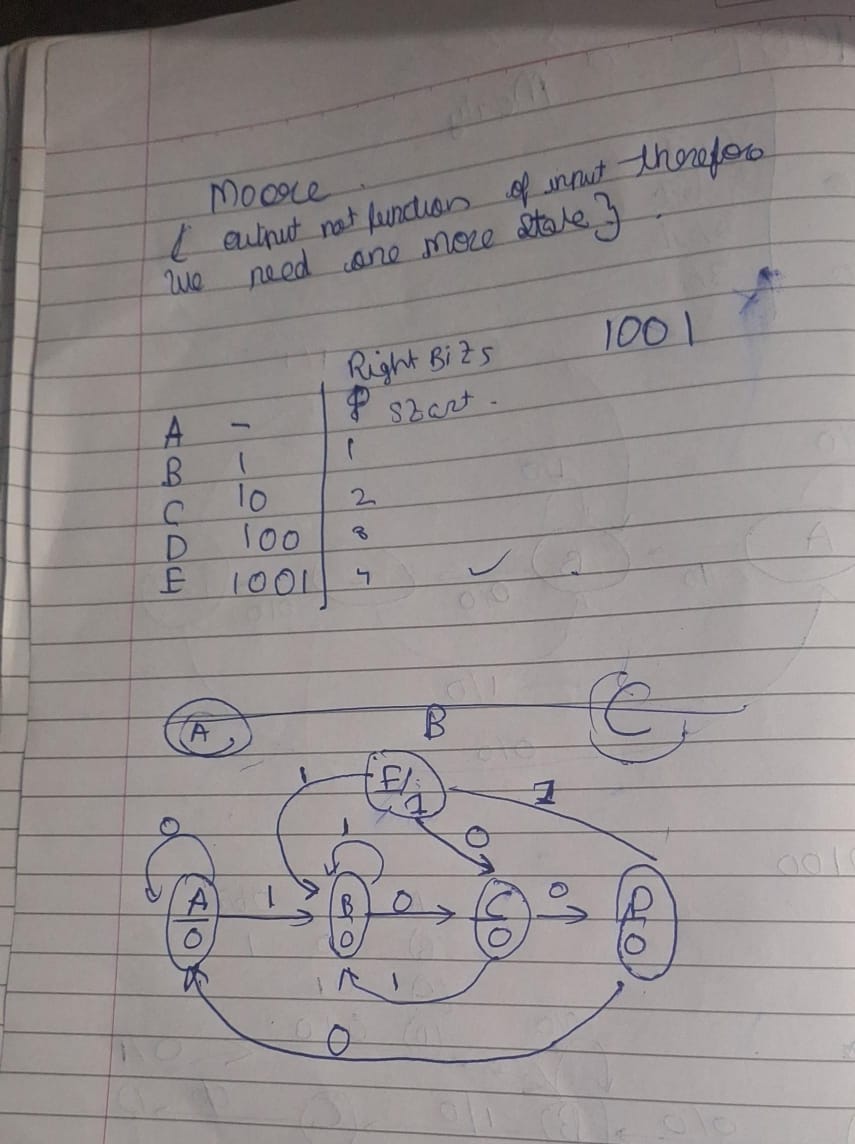 Moore
{ output not function of input therefore
we need one more state }
1001
Right Bits
A - start
B 1 1
C 10 2
D 100 3
E 1001 4 ✓
A B C
E/1
1 1 0 1
0
A/0 1 B/0 0 C/0 0 D/0
1
0